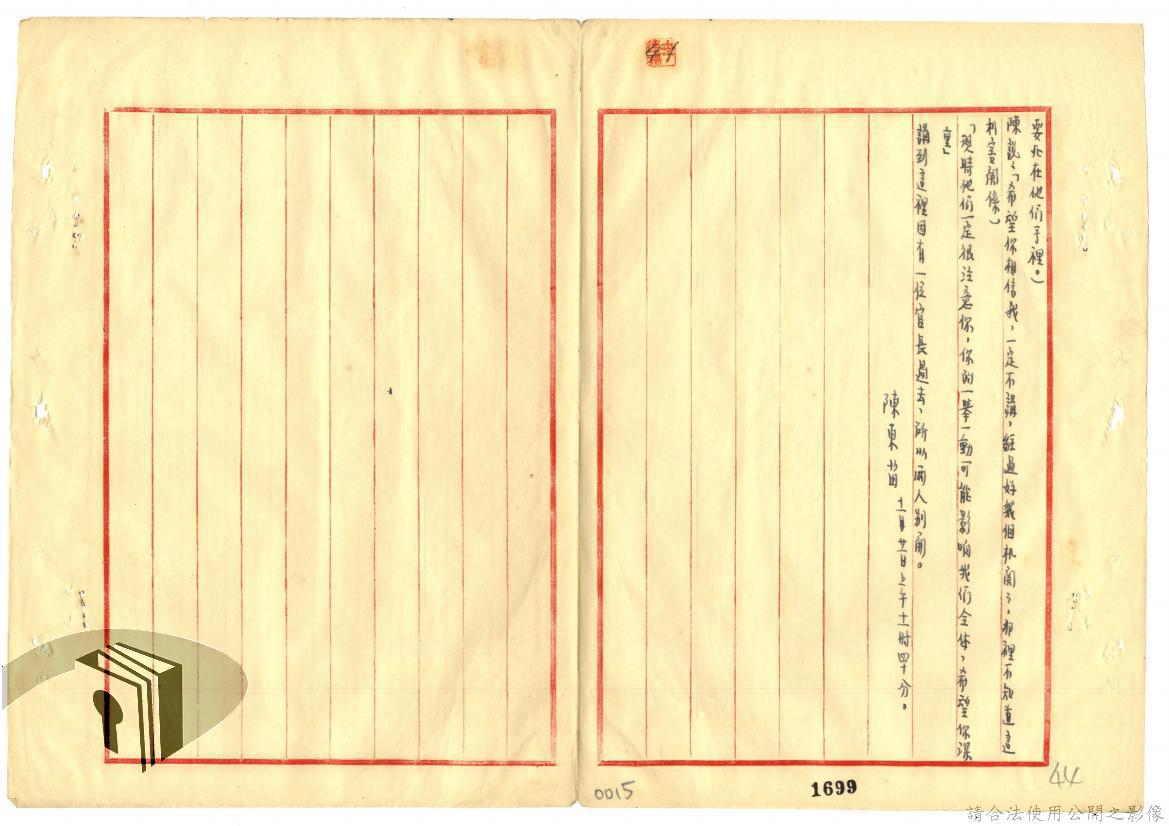 要死在他們手裡。)
陳說,「希望你相信我,一定不講,經過好幾個机関了,那裡不知道這
利害関係)
「現時他們一定很注意你,你的一擧一動可能影响我們全体,希望你深
重」
講到這裡因有一位官長過去,所以兩人别開。
陳東
十一月廿一日上午十一时四十分。
44
1699
0015
請合法使用公開之影像